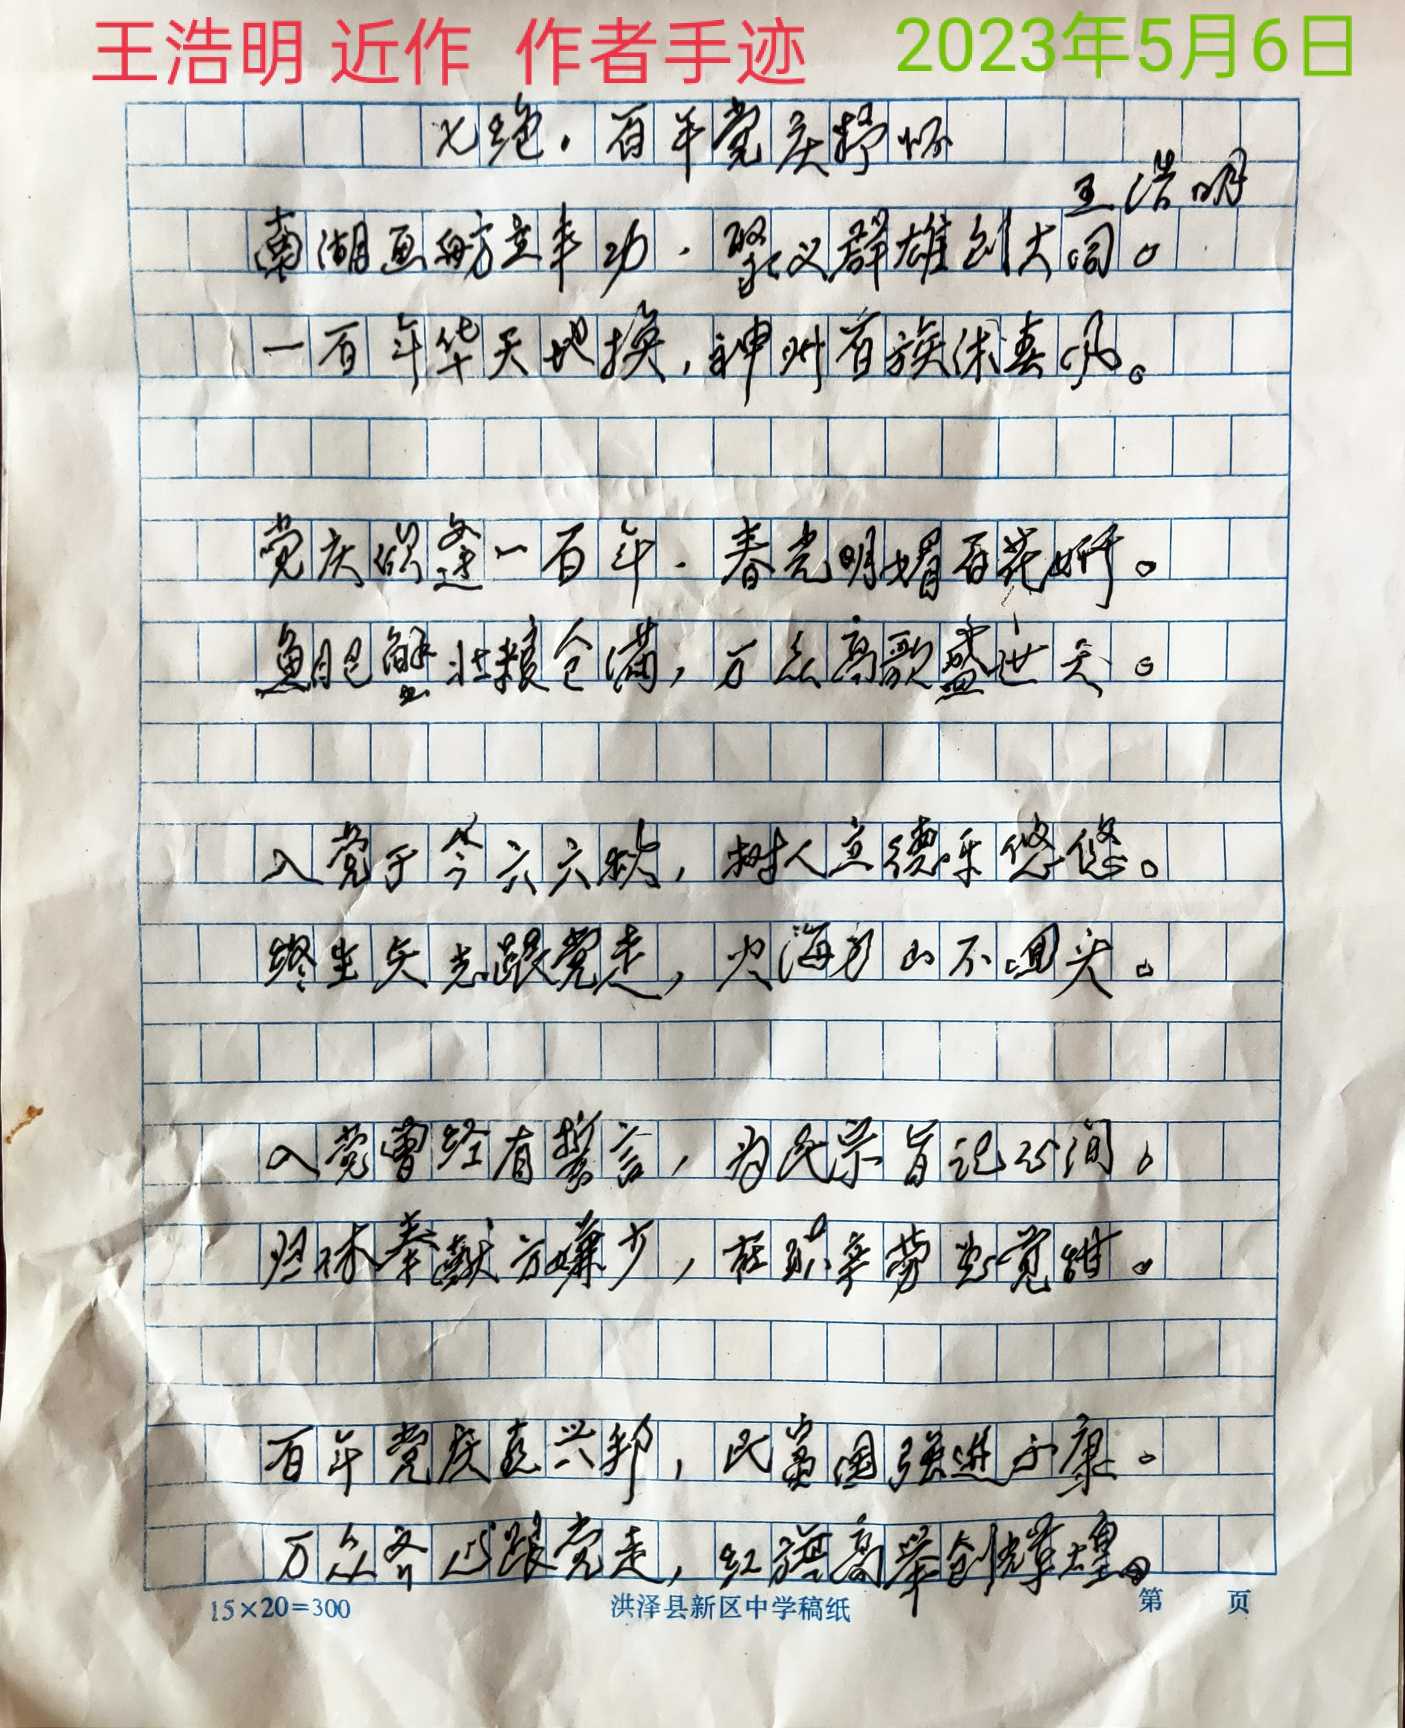 王浩明 近作 作者手迹 2023年5月6日
七绝·百年党庆抒怀
王浩明
南湖画舫立丰功，聚义群雄创大同。
一百年华天地换，神州百族沐春风。
党庆欣逢一百年，春光明媚百花妍。
鱼肥蟹壮粮仓满，万众高歌盛世天。
入党于今六六秋，树人立德乐悠悠。
终生矢志跟党走，火海刀山不回头。
入党曾经有誓言，为民宗旨记心间，
归林奉献方嫌少，在职辛劳当觉甜。
百年党庆喜兴邦，民富国强进小康。
万众齐心跟党走，红旗高举创辉煌。
15×20=300 洪泽县新区中学稿纸 第 页